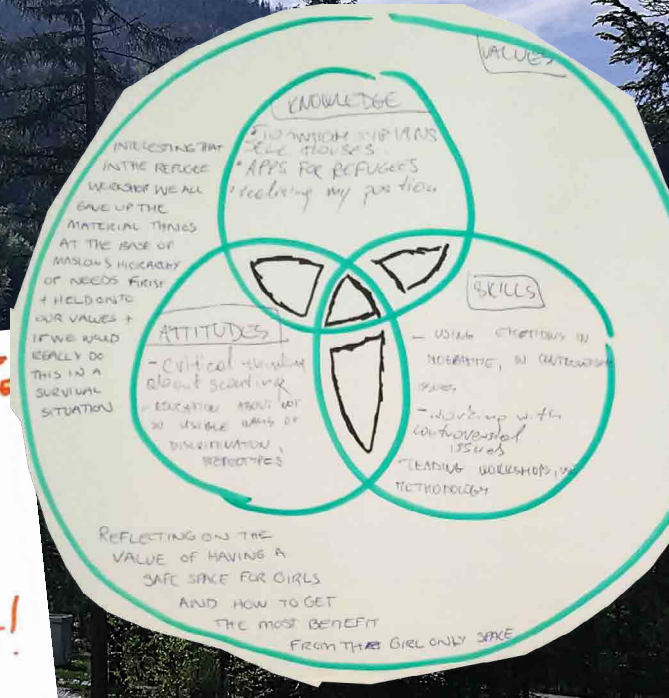 VALUES
KNOWLEDGE
HOUSES.
• APPS FOR REFUGEES
• realising my position
INTERESTING THAT
IN THE REFUGEE
WORKSHOP WE ALL
GAVE UP THE
MATERIAL THINGS
AT THE BASE OF
MASLOWS HIERARCHY
OF NEEDS FIRST
+ HELD ONTO
OUR VALUES +
IF WE WOULD
REALLY DO
THIS IN A
SURVIVAL
SITUATION
ATTITUDES
- critical thinking
about scouting
- EDUCATION ABOUT NOT
SO VISIBLE WAYS OF
DISCRIMINATION,
STEREOTYPES
SKILLS
- USING EMOTIONS IN
IN CONTROVERSIAL
ISSUES
- working with
controversial
issues
- LEADING WORKSHOPS,
METHODOLOGY
REFLECTING ON THE
VALUE OF HAVING A
SAFE SPACE FOR GIRLS
AND HOW TO GET
THE MOST BENEFIT
FROM THAT GIRL ONLY SPACE